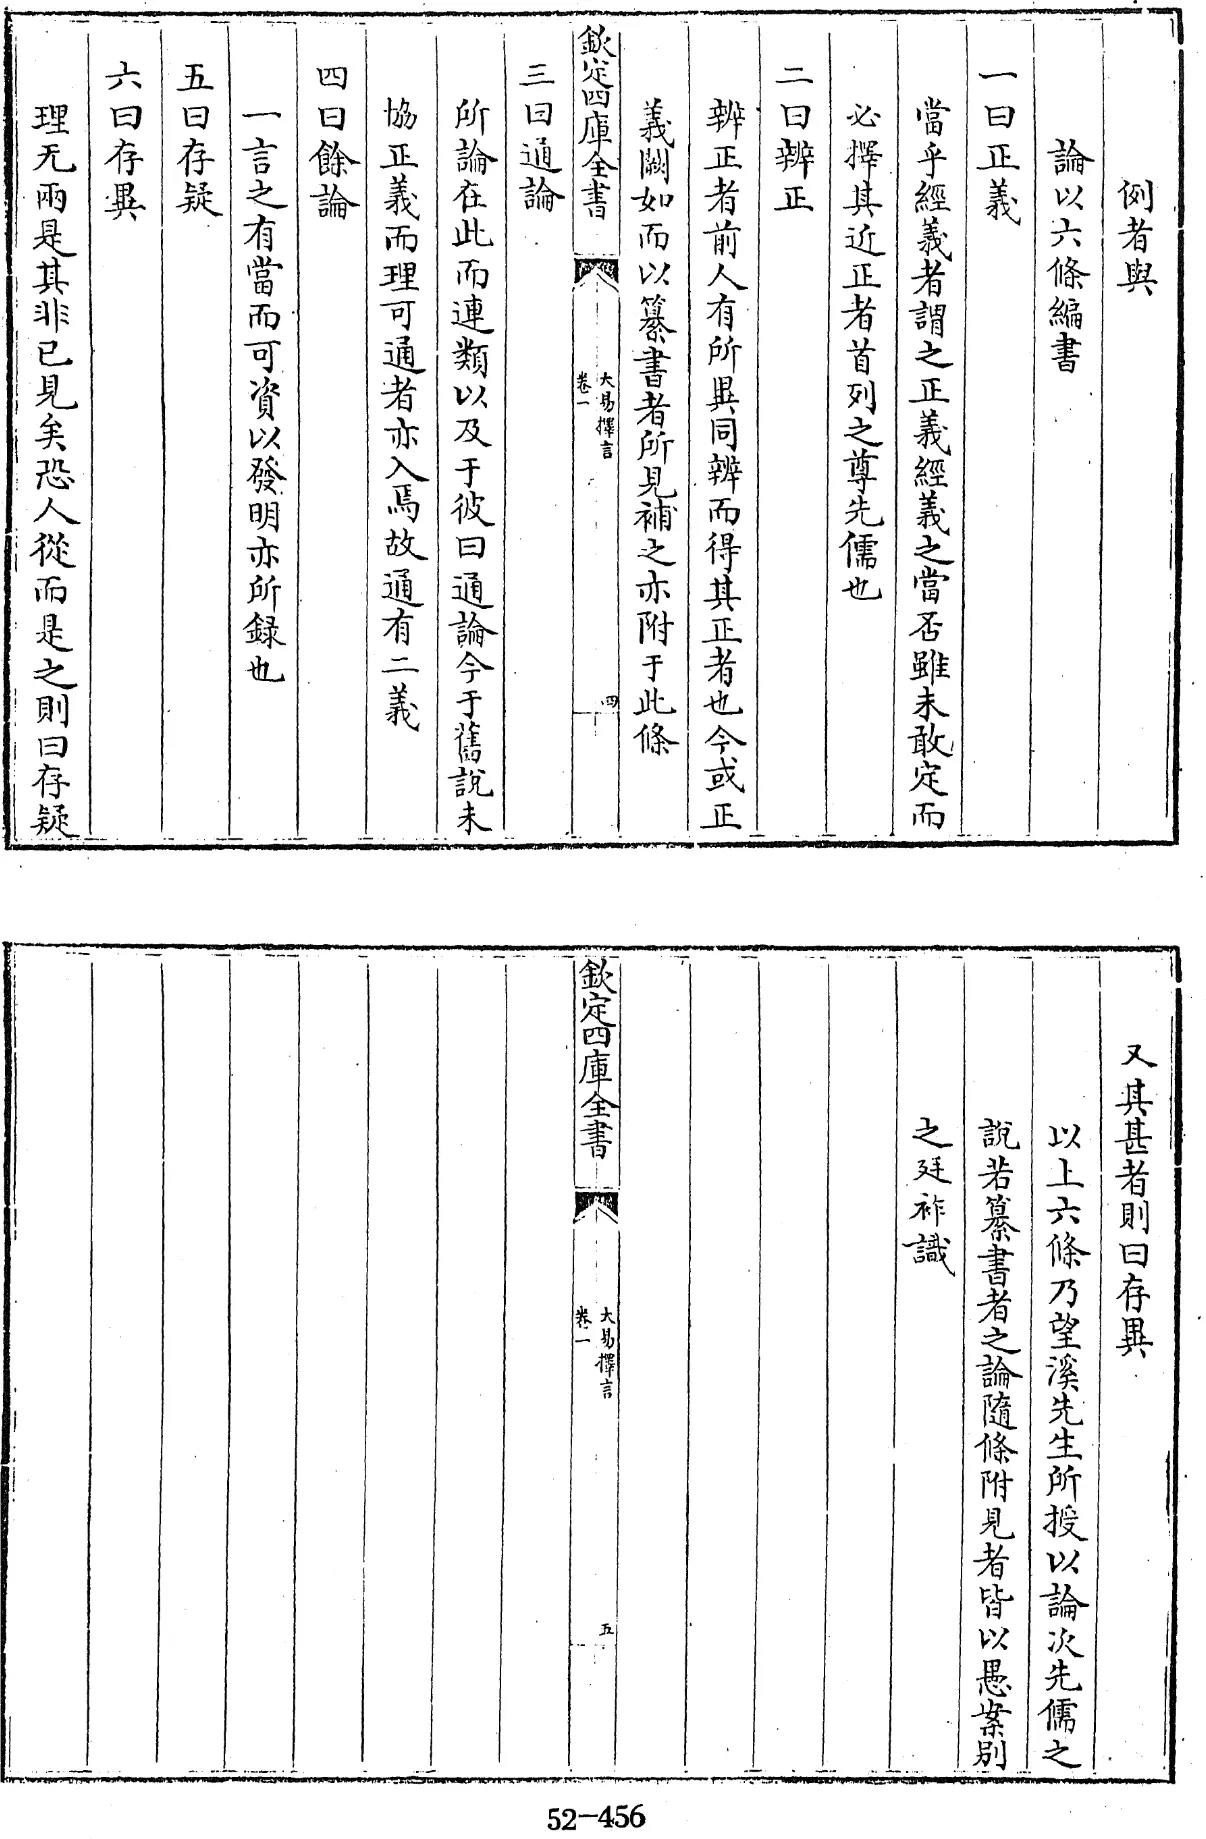 例者與
論以六條編書
一曰正義
當乎經義者謂之正義經義之當否雖未敢定而
必擇其近正者首列之尊先儒也
二曰辨正
辨正者前人有所異同辨而得其正者也今或正
義闕如而以纂書者所見補之亦附于此條
欽定四庫全書
大易擇言
卷一
四
三曰通論
所論在此而連類以及于彼曰通論今于舊說未
協正義而理可通者亦入焉故通有二義
四曰餘論
一言之有當而可資以發明亦所録也
五曰存疑
六曰存異
理无兩是其非已見矣恐人從而是之則曰存疑
又其甚者則曰存異
以上六條乃望溪先生所授以論次先儒之
說若纂書者之論隨條附見者皆以愚案别
之廷祚識
欽定四庫全書
大易擇言
卷一
五
52-456